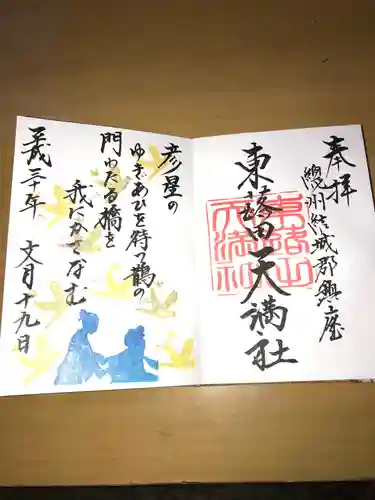 奉拝
總州結城郡與座
東蕗田天満社
彦星の
ゆきあひを待つ鵲の
門わたる橋を
我にかさなむ
平成三十年 文月十九日